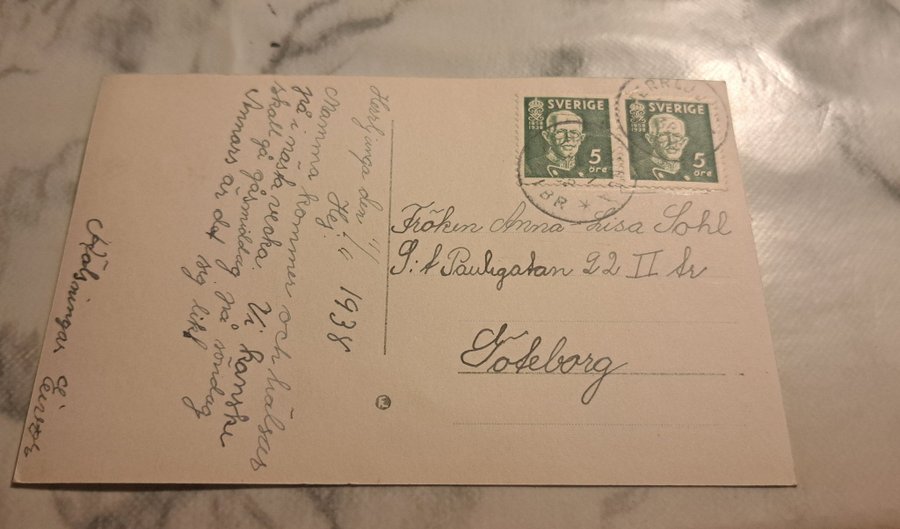 SVERIGE
1858
1938
5
öre
SVERIGE
1858
1938
5
öre
Herrljunga den
1938
Hej.
Mamma kommer och hälsar
på i nästa vecka. Vi kanske
skall gå gåsmiddag på söndag
Annars är det sig likt
Hälsningar
Fröken Anna-Lisa Sohl
S:t Pauligatan 22 II tr
Göteborg